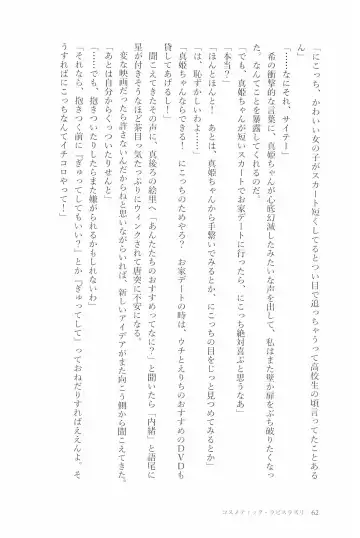 「にこっち、かわいい女の子がスカート短くしてるとつい目で追っちゃうって高校生の頃言ってたことある
ん」
「……なにそれ、サイテー」
希の衝撃的な言葉に、真姫ちゃんが心底幻滅したみたいな声を出して、私はまた壁か扉をぶち破りたくなっ
た。なんてことを暴露してくれるのだ。
「でも、真姫ちゃんが短いスカートでお家デートに行ったら、にこっち絶対喜ぶと思うなあ」
「本当？」
「ほんとほんと！　あとは、真姫ちゃんから手繋いでみるとか、にこっちの目をじっと見つめてみるとか」
「は、恥ずかしいわよ……」
「真姫ちゃんならできる！　にこっちのためやろ？　お家デートの時は、ウチとえりちのおすすめのＤＶＤも
貸してあげるし！」
聞こえてきたその声に、真後ろの絵里へ「あんたたちのおすすめってなに？」と聞いたら「内緒」と語尾に
星が付きそうなほど茶目っ気たっぷりにウィンクされて唐突に不安になる。
変な映画だったら許さないんだからねと思いながらいれば、新しいアイデアがまた向こう側から聞こえてきた。
「あとは自分からくっつたりせんと」
「……でも、抱きついたりしたらまた嫌がられるかもしれないわ」
「それなら、抱きつく前に『ぎゅってしてもいい？』とか『ぎゅってして』っておねだりすればええんよ。そ
うすればにこっちなんてイチコロやって！」
コスメティック・ラピスラズリ　62